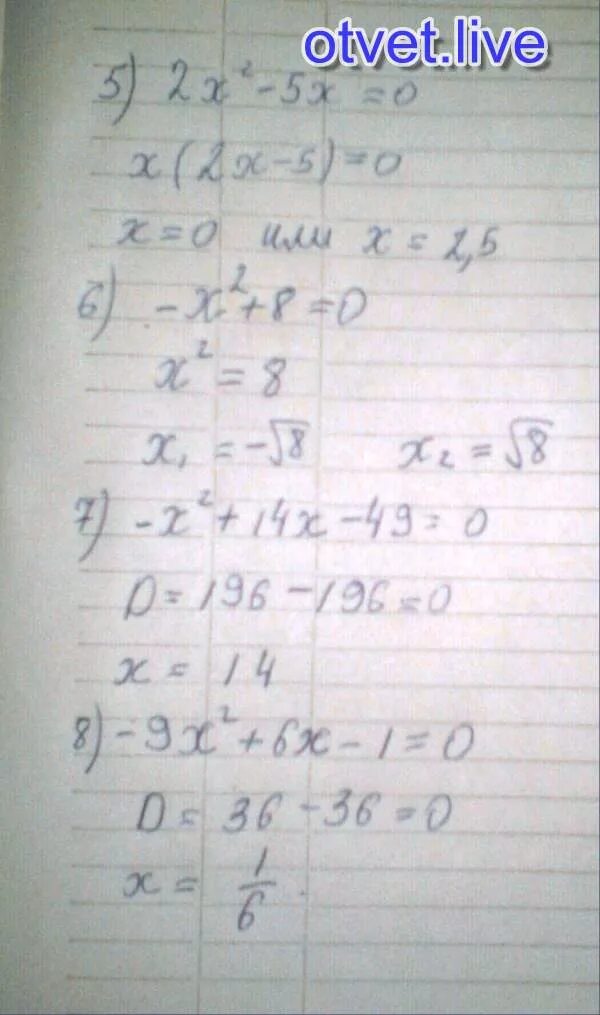 otvet.live
5) 2x² - 5x = 0
x(2x - 5) = 0
x = 0 или x = 2,5
6) -x² + 8 = 0
x² = 8
x₁ = -√8 x₂ = √8
7) -x² + 14x - 49 = 0
D = 196 - 196 = 0
x = 14
8) -9x² + 6x - 1 = 0
D = 36 - 36 = 0
x = 1/6